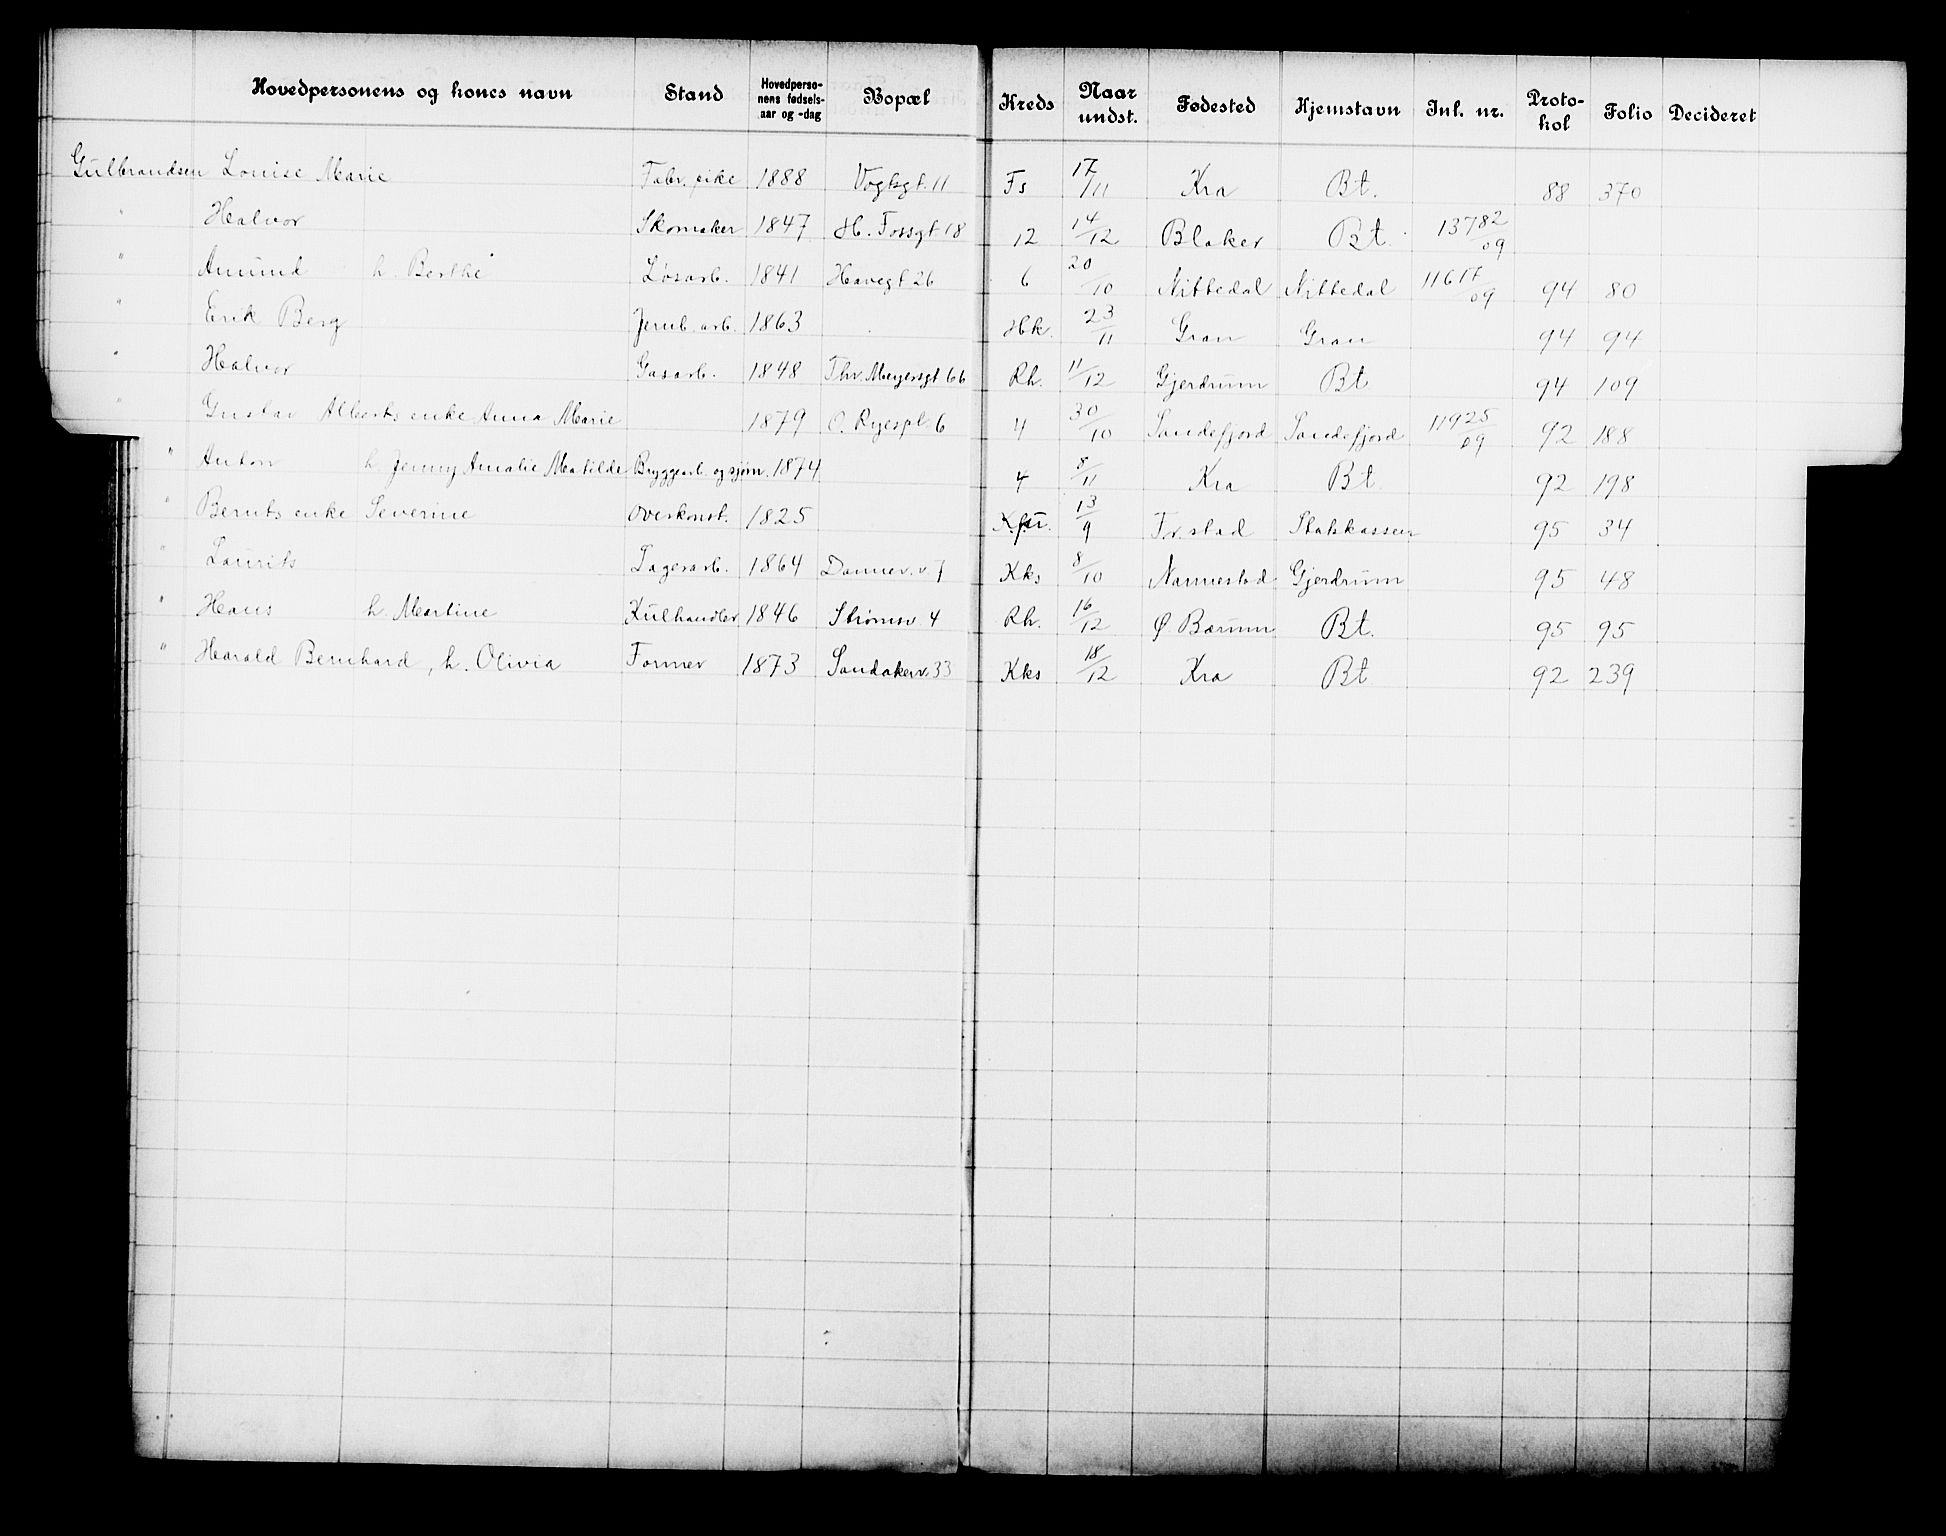 Hovedpersonens og hones navn Stand Hovedperso-nens fødsels-aar og -dag Bopæl Kreds Naar undst. Fødested Hjemstavn Inl. nr. Proto-kol Folio Decideret
Gulbrandsen Louise Marie Fabr. pike 1888 Vogtsgt. 11 Fs 17/11 Kra Bt. 88 370
" Halvor Skomaker 1847 H. Fossgt 18 12 14/12 Blaker Bt. 13782/09
" Amund h. Berthe Løsarb. 1841 Havegt 26 6 20/10 Nittedal Nittedal 11617/09 94 80
" Erik Berg Jernb. arb. 1863 Hk. 23/11 Gran Gran 94 94
" Halvor Gasarb. 1848 Thv. Meyersgt 66 Rh. 11/12 Gjerdrum Bt 94 109
" Gustav Alberts enke Anna Marie 1879 O. Ryespl. 6 4 30/10 Sandefjord Sandefjord 11925/09 92 188
" Anton h. Jenny Amalie Matilde Bryggearb. og sjøm. 1874 4 8/11 Kra Bt. 92 198
" Bernts enke Severine Overkonst. 1825 13/9 Statskassen 95 34
" Laurits Lagerarb. 1864 Dannev. v 7 Kks 8/10 Nannestad Gjerdrum 95 48
" Hans h. Martine Kulhandler 1846 Strømsv 4 Rh. 16/12 Ø. Bærum Bt. 95 95
" Harald Bernhard, h. Olivia Former 1873 Sandakerv. 33 Kks 18/12 Kra Bt 92 239